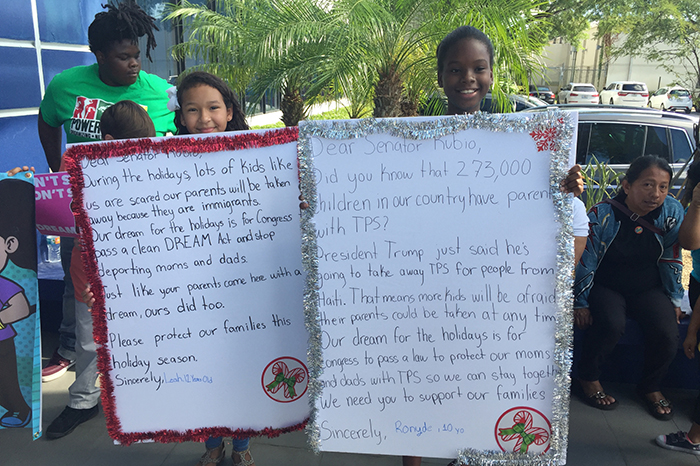 POWER
Dear Senator Rubio,
During the holidays lots of kids like
us are scared our parents will be taken
away because they are immigrants.
Our dream for the holidays is for Congress
pass a clean DREAM Act and stop
deporting moms and dads.
Just like your parents came here with a
dream, ours did too.
Please protect our families this
holiday season.
Sincerely, Leah, 12
Dear Senator Rubio,
Did you know that 273,000
children in our country have parent
with TPS?
President Trump just said he's
going to take away TPS for people from
Haiti. That means more kids will be afraid
their parents could be taken at any tim
Our dream for the holidays is for
Congress to pass a law to protect our moms
and dads with TPS so we can stay togeth
We need you to support our families
Sincerely, Ronyde, 10 yo